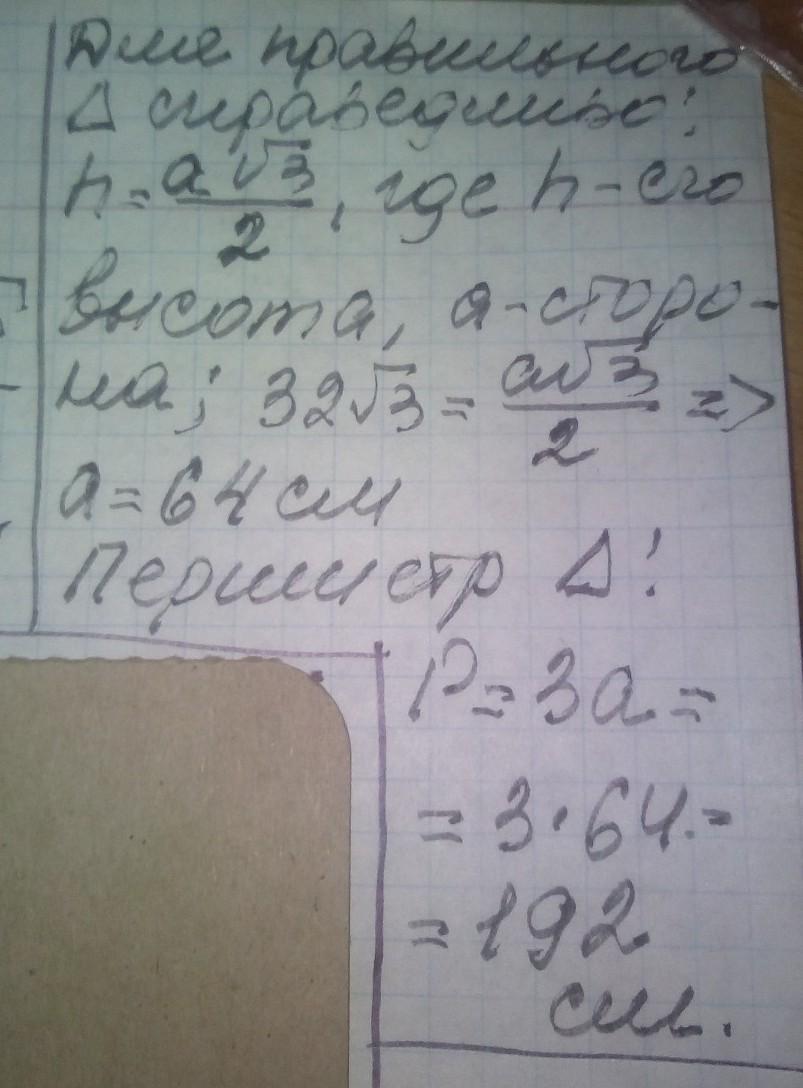 Для правильного
Δ справедливо:
h = a√3/2, где h - его
высота, a - сторо-
на; 32√3 = a√3/2 =>
a = 64 см
Периметр Δ:
P = 3a =
= 3·64 =
= 192
см.